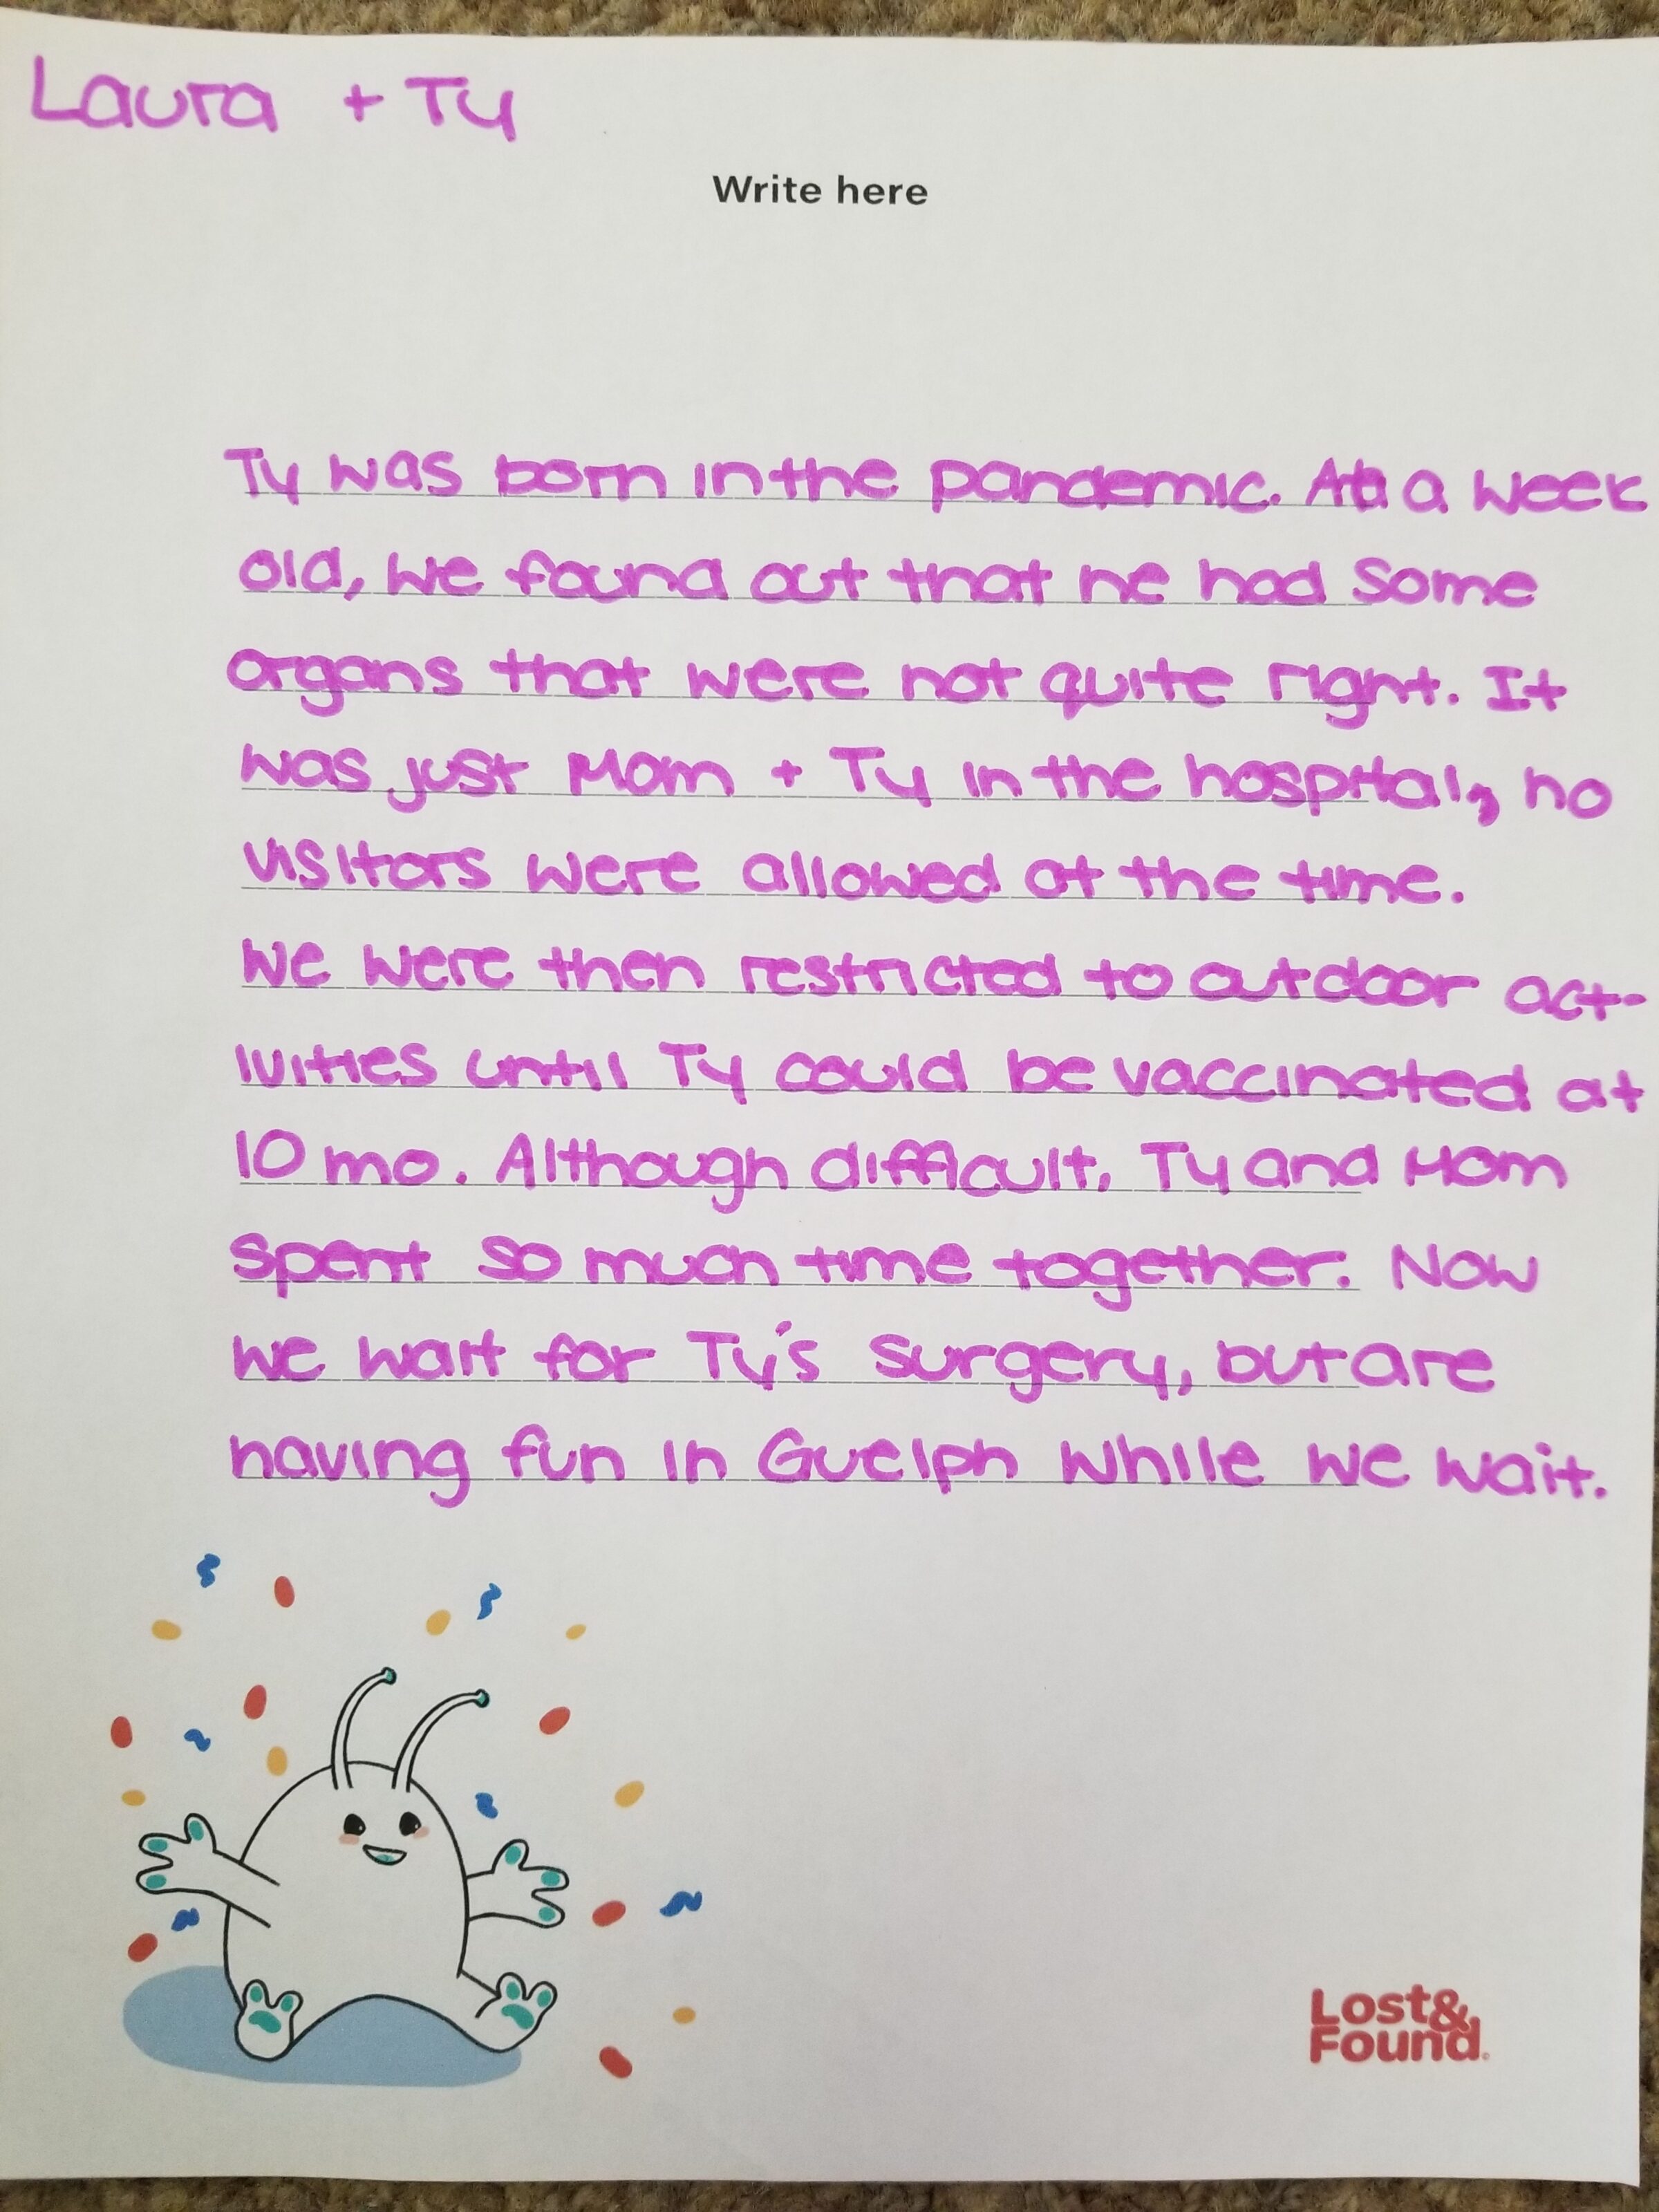 Laura + Ty
Write here
Ty was born in the pandemic. At a week
old, we found out that he had some
organs that were not quite right. It
was just Mom + Ty in the hospital, no
visitors were allowed at the time.
We were then restricted to outdoor act-
ivities until Ty could be vaccinated at
10 mo. Although difficult, Ty and Mom
spent so much time together. Now
we wait for Ty's surgery, but are
having fun in Guelph while we wait.
Lost&
Found